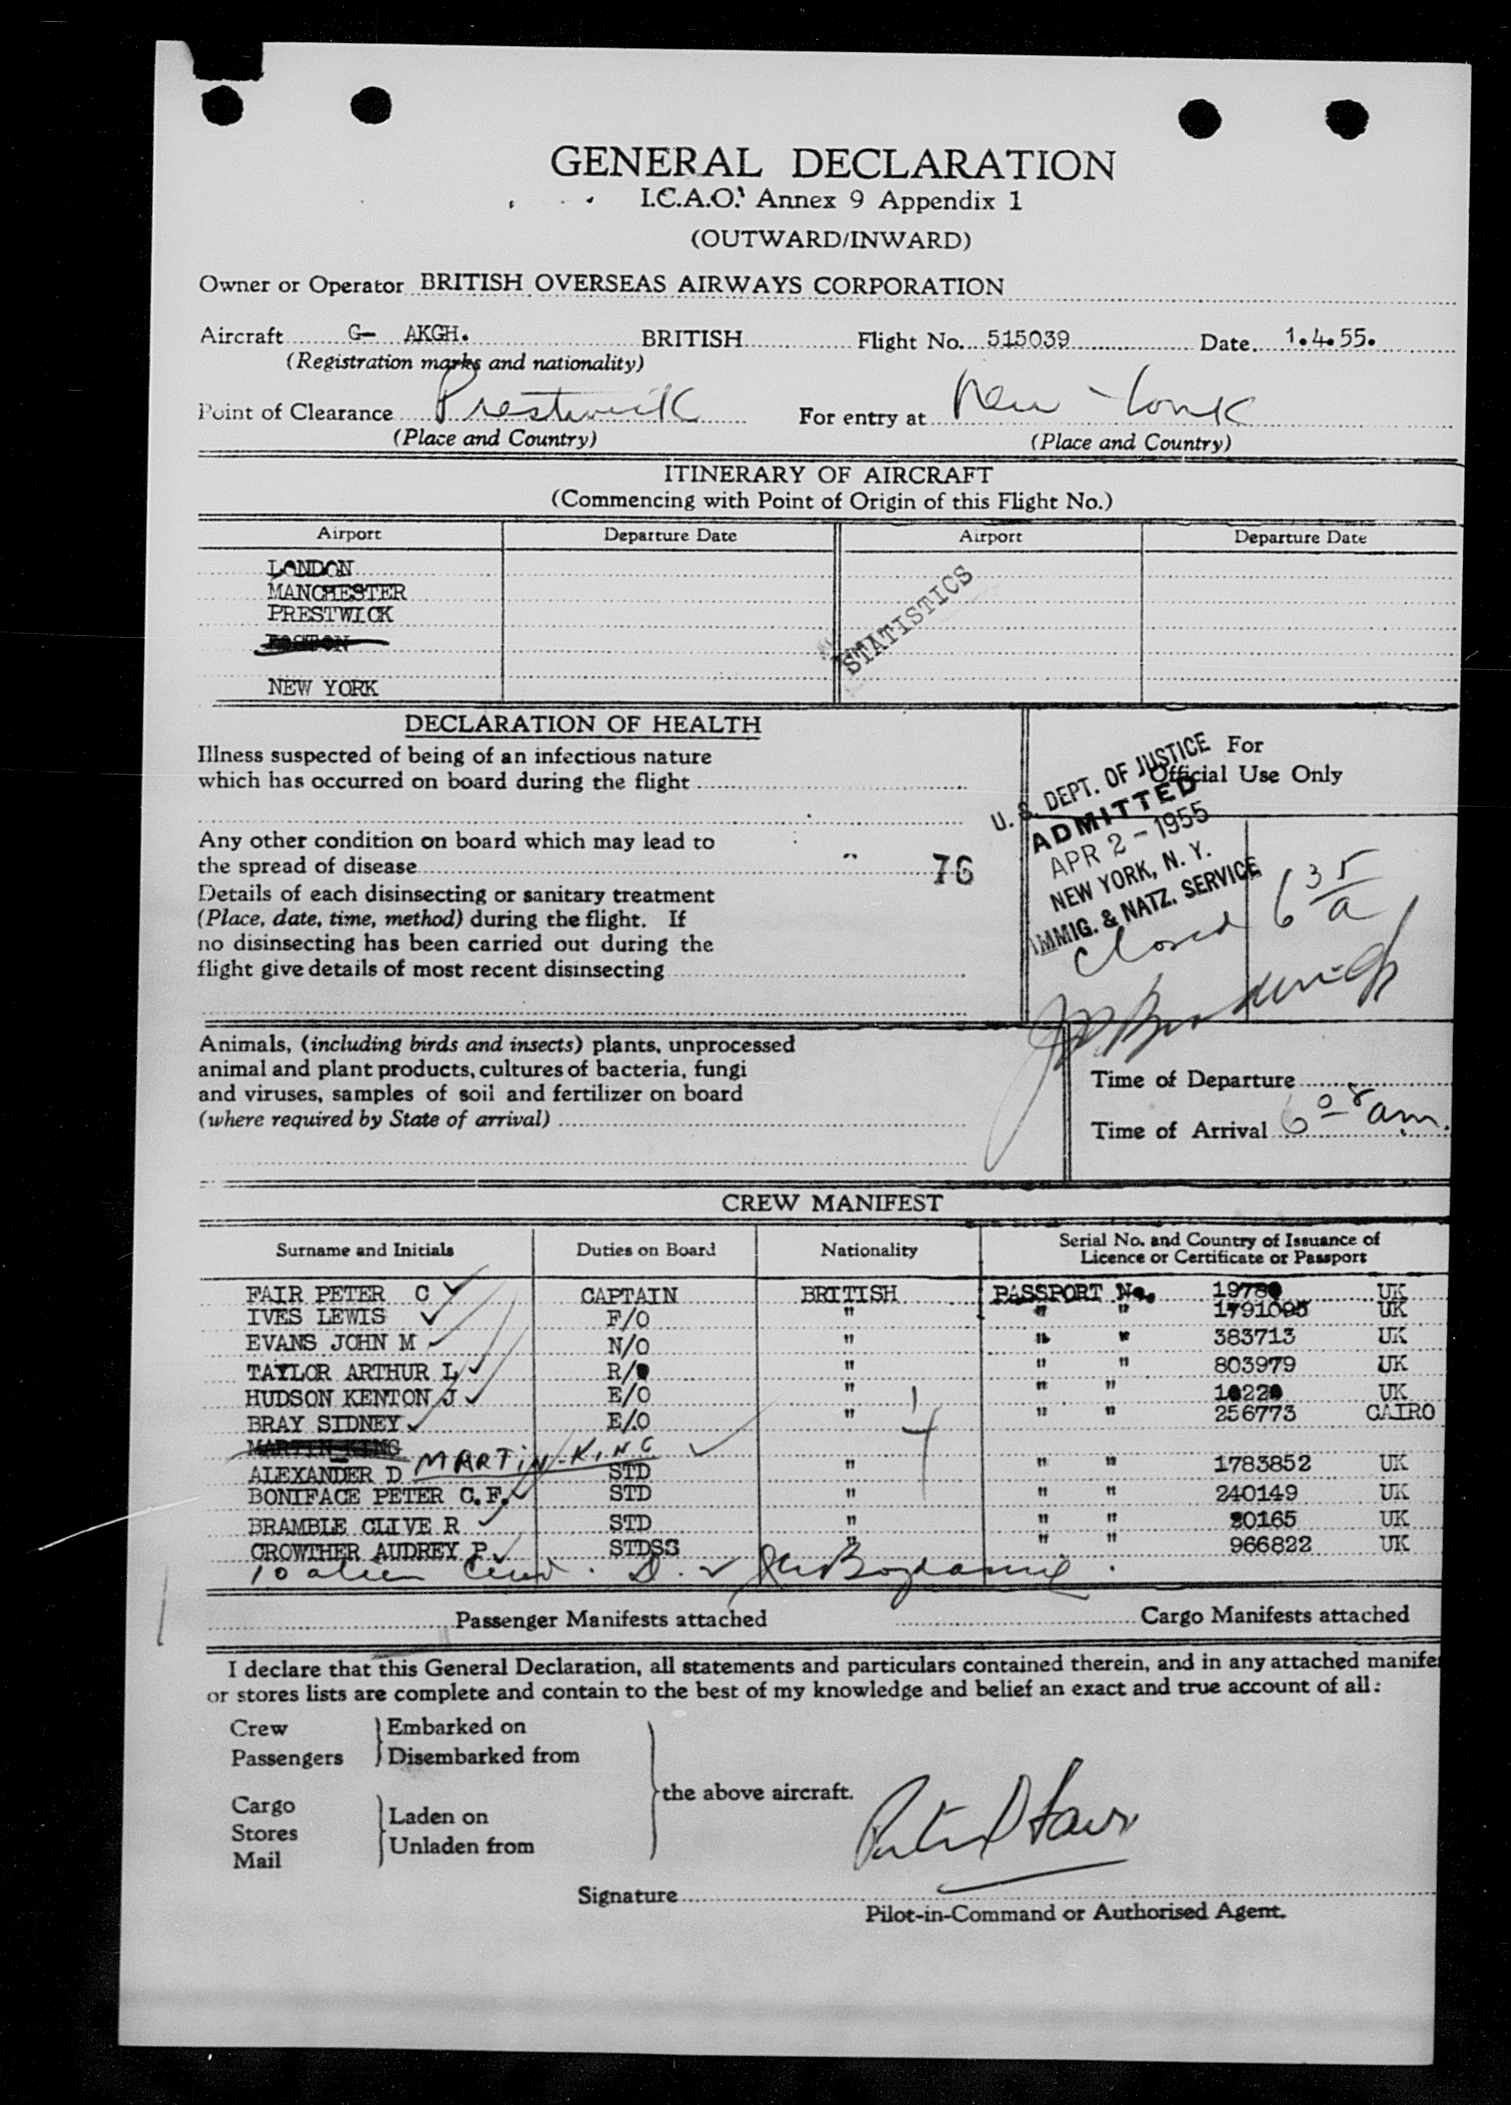 GENERAL DECLARATION
I.C.A.O. Annex 9 Appendix 1
(OUTWARD/INWARD)
Owner or Operator BRITISH OVERSEAS AIRWAYS CORPORATION
Aircraft G- AKGH. BRITISH Flight No. 515039 Date 1.4.55.
(Registration marks and nationality)
Point of Clearance Prestwick For entry at New York
(Place and Country) (Place and Country)
ITINERARY OF AIRCRAFT
(Commencing with Point of Origin of this Flight No.)
Airport Departure Date Airport Departure Date
LONDON
MANCHESTER
PRESTWICK
BOSTON
NEW YORK
STATISTICS
DECLARATION OF HEALTH
Illness suspected of being of an infectious nature
which has occurred on board during the flight
Any other condition on board which may lead to
the spread of disease
76
Details of each disinsecting or sanitary treatment
(Place, date, time, method) during the flight. If
no disinsecting has been carried out during the
flight give details of most recent disinsecting
For
Official Use Only
U. S. DEPT. OF JUSTICE
ADMITTED
APR 2 - 1955
NEW YORK, N. Y.
IMMIG. & NATZ. SERVICE
Closed 6 35 a
Animals, (including birds and insects) plants, unprocessed
animal and plant products, cultures of bacteria, fungi
and viruses, samples of soil and fertilizer on board
(where required by State of arrival)
Time of Departure
Time of Arrival 6 08 am.
CREW MANIFEST
Surname and Initials Duties on Board Nationality Serial No. and Country of Issuance of
Licence or Certificate or Passport
FAIR PETER C CAPTAIN BRITISH PASSPORT No. 19780 UK
IVES LEWIS F/O " " " 1791095 UK
EVANS JOHN M N/O " " " 383713 UK
TAYLOR ARTHUR L R/O " " " 803979 UK
HUDSON KENTON J E/O " " " UK
BRAY SIDNEY E/O " " " 256773 CAIRO
MARTIN KING
ALEXANDER D MARTIN-KING STD " " " 1783852 UK
BONIFACE PETER C.F. STD " " " 240149 UK
BRAMBLE CLIVE R STD " " " 20165 UK
CROWTHER AUDREY P STDSS " " " 966822 UK
10 alien crew.
Passenger Manifests attached Cargo Manifests attached
I declare that this General Declaration, all statements and particulars contained therein, and in any attached manife
or stores lists are complete and contain to the best of my knowledge and belief an exact and true account of all:
Crew Embarked on
Passengers Disembarked from
the above aircraft.
Cargo Laden on
Stores Unladen from
Mail
Signature
Pilot-in-Command or Authorised Agent.